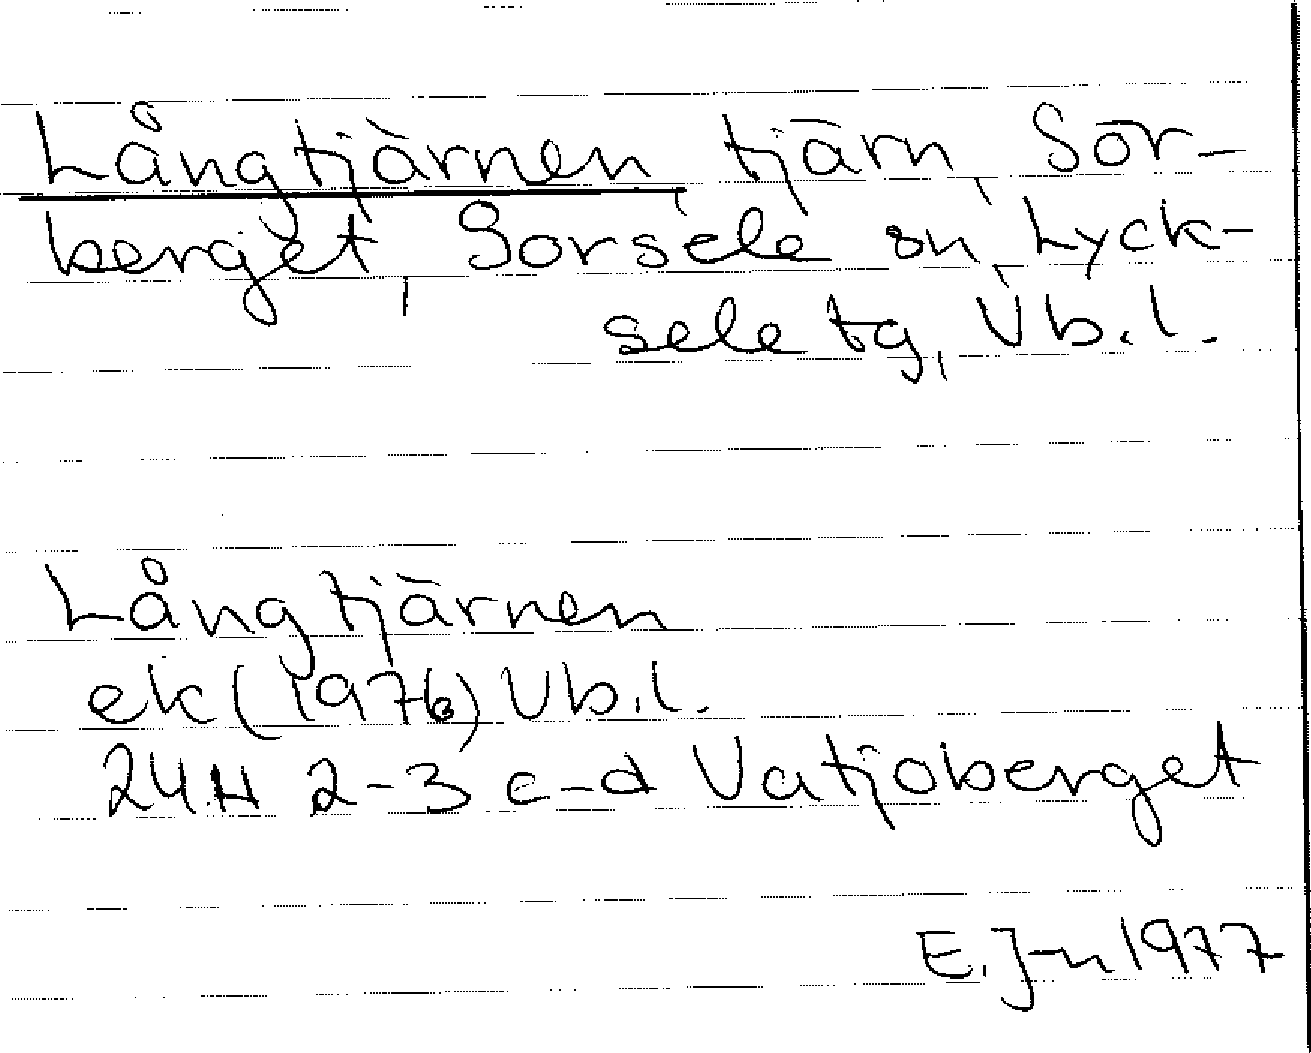 Långtjärnen, tjärn, Sör-
berget, Sorsele sn, Lyck-
sele tg, Vb.l.
Långtjärnen
ek (1976) Vb.l.
24H 2-3 c-d Vatjoberget
E. J-n 1977